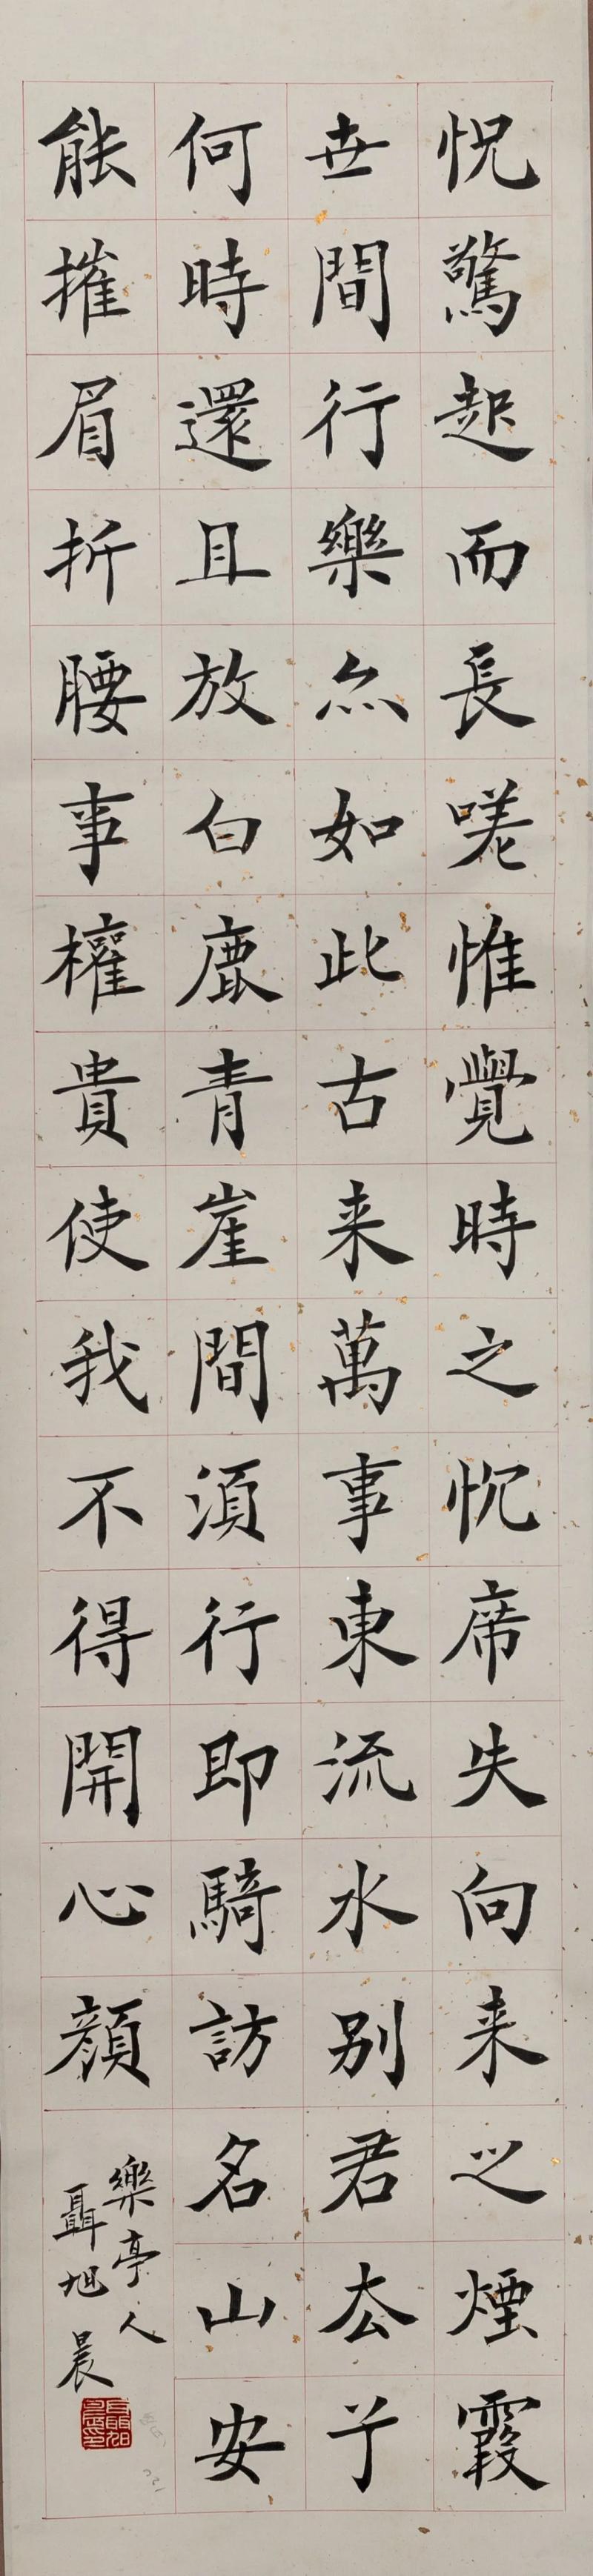 怳驚起而長嗟惟覺時之忱席失向来之煙霞
世間行樂亦如此古来萬事東流水别君去兮
何時還且放白鹿青崖間須行即騎訪名山安
能摧眉折腰事權貴使我不得開心顔
樂亭人
聶旭晨